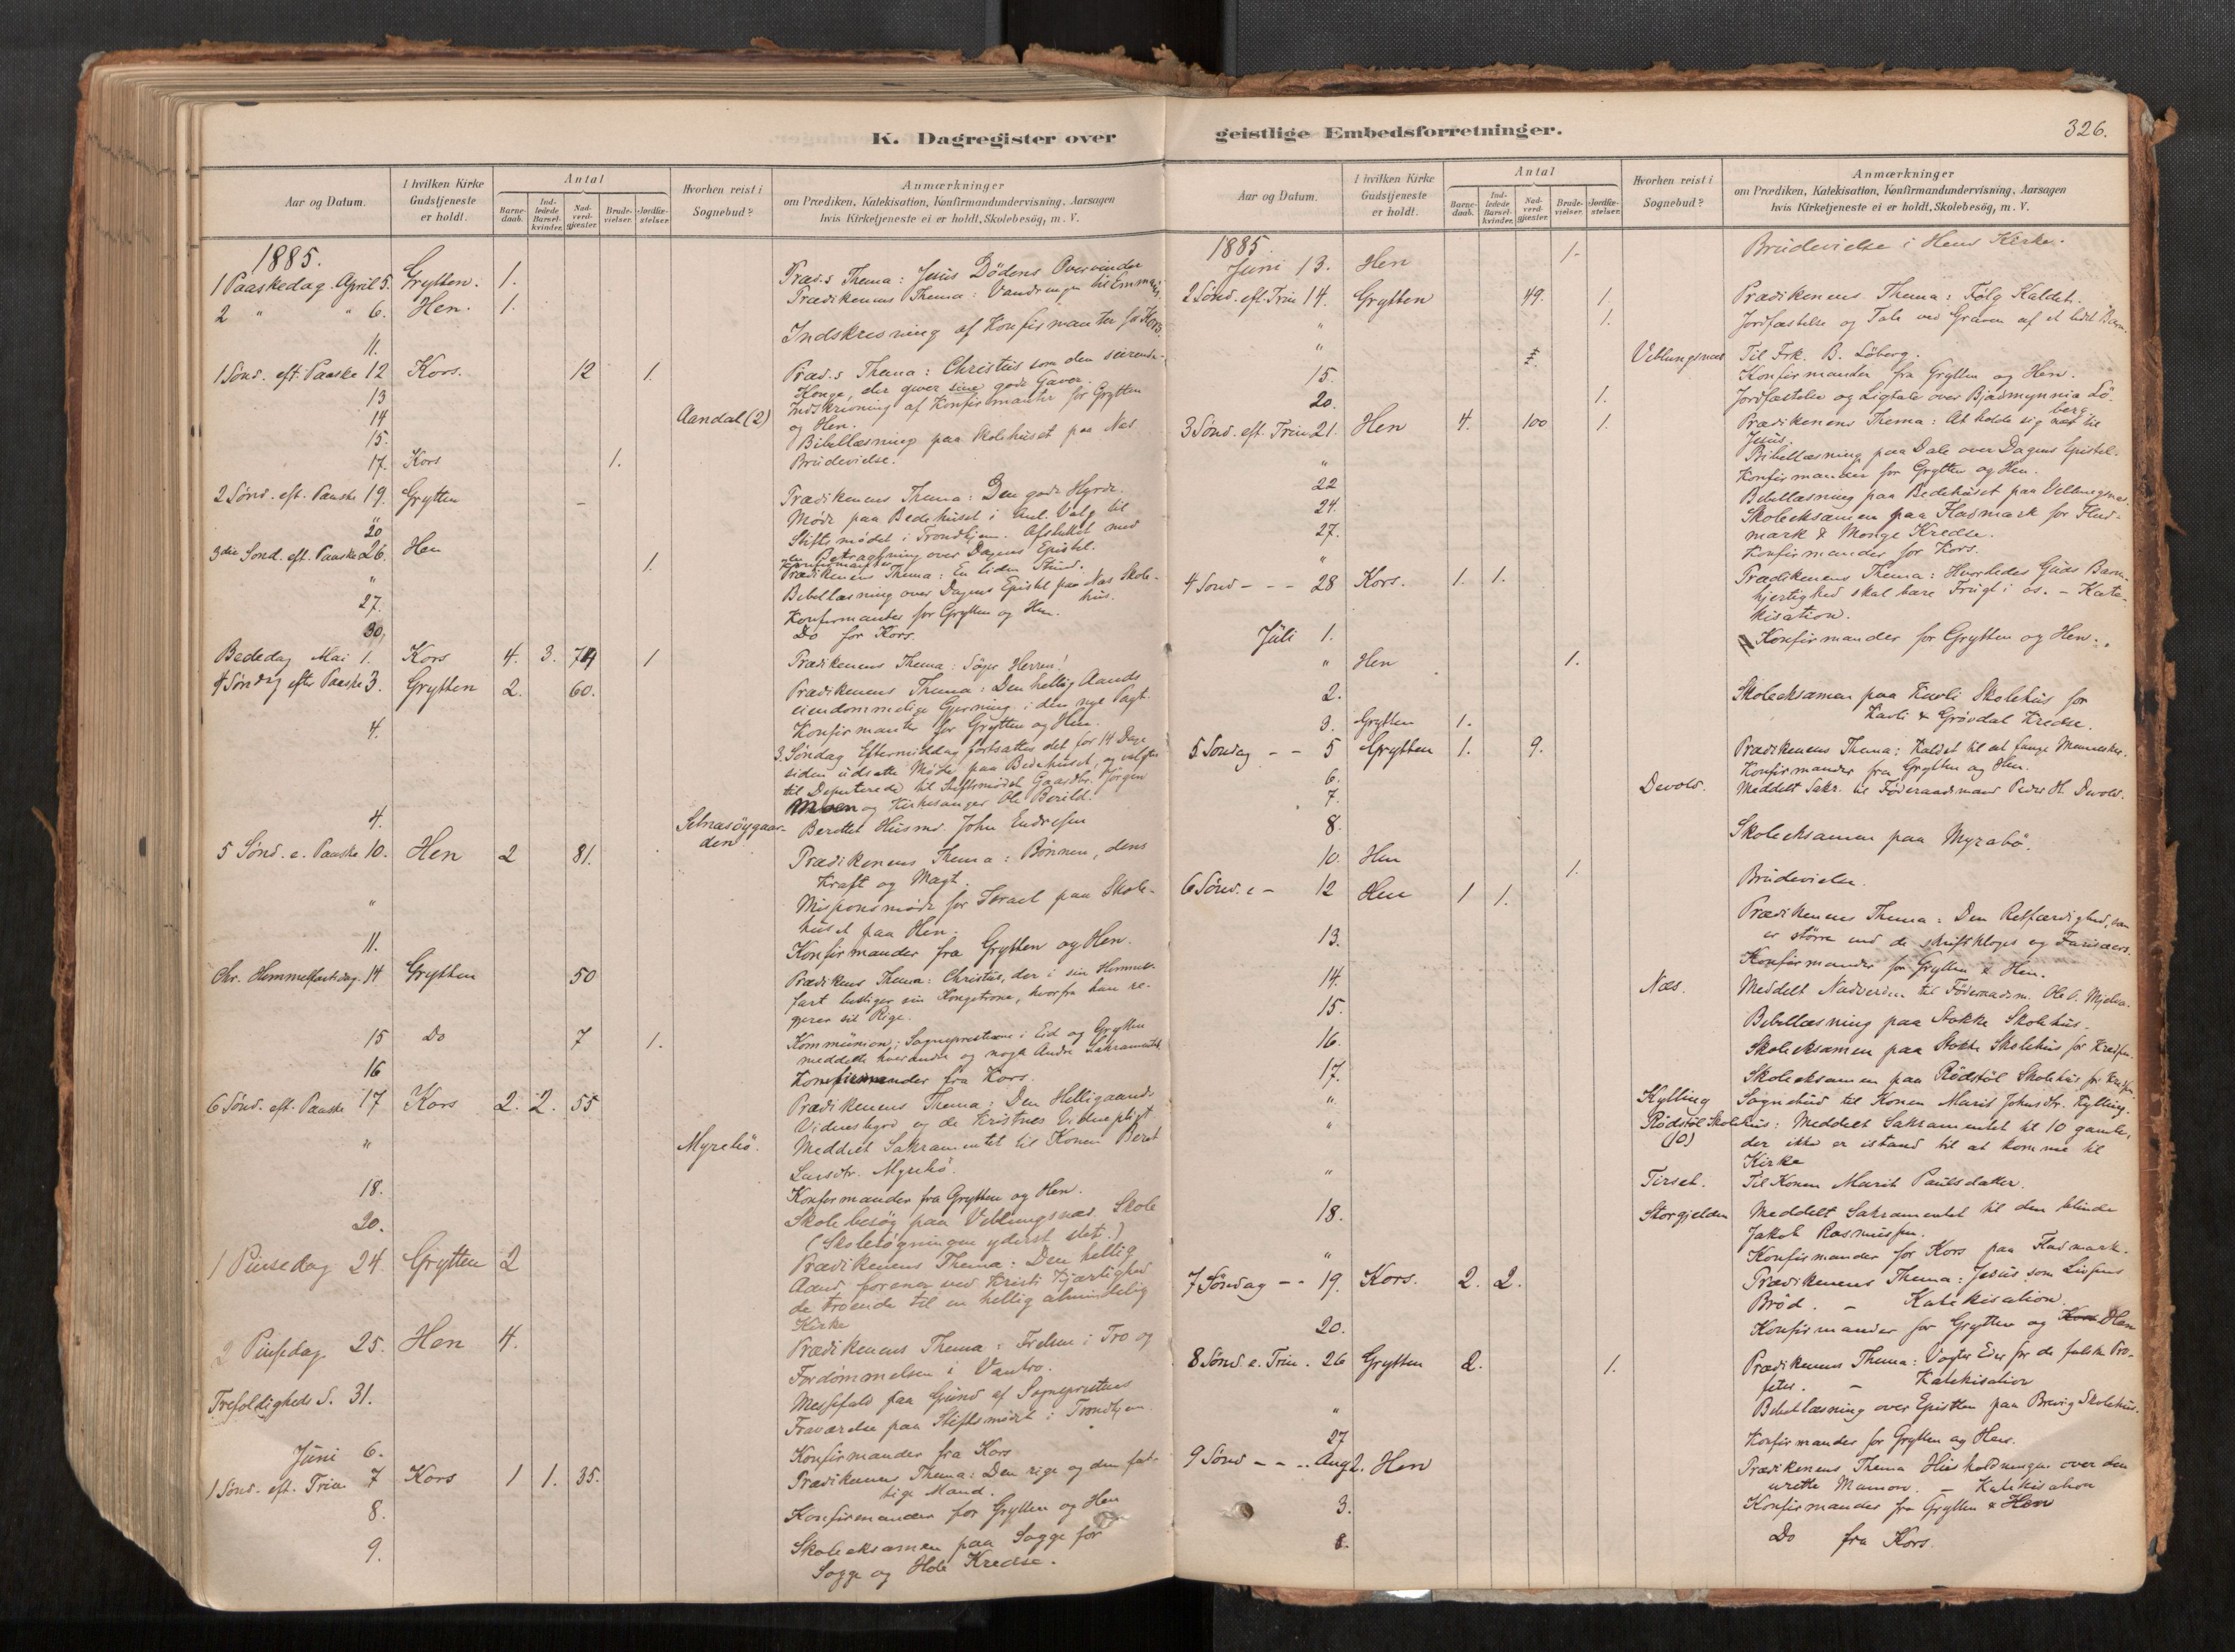 K. Dagregister over geistlige Embedsforretninger.
326.
Aar og Datum.
I hvilken Kirke
Gudstjeneste
er holdt.
Antal
Barne-
daab.
Ind-
ledede
Barsel-
kvinder.
Nad-
verd-
gjæster.
Brude-
vielser.
Jordfæ-
stelser.
Hvorhen reist i
Sognebud?
Anmærkninger
om Prædiken, Katekisation, Konfirmandundervisning, Aarsagen
hvis Kirketjeneste ei er holdt, Skolebesög, m. V.
1885.
1 Paaskedag April 5. Grytten. 1. Præd.s Thema: Jesus Dödens Overvinder
2 " " 6. Hen. 1. Prædikenens Thema: Vandringen til Emmaus.
11. Indskrivning af Konfirmanter for Kors.
1 Sönd. eft. Paaske 12 Kors. 12 1. Præd.s Thema: Christus som den seirende
Konge, der giver sine gode Gaver.
13 Indskrivning af Konfirmanter for Grytten
og Hen.
14 Aandal (2)
15. Bibellæsning paa Skolehuset paa Næs
17. Kors 1. Brudevielse.
2 Sönd. eft. Paaske 19. Grytten - Prædikenens Thema: Den gode Hyrde.
Möde paa Bedehuset i Anl. Valg til
Stiftsmödet i Trondhjem. Afsluttet med
en Betragtning over Dagens Epistel.
20 Konfirmanter
3die Sönd. eft. Paaske 26. Hen 1. Prædikenens Thema: En liden Stund.
" Bibellæsning over Dagens Epistel paa Næs Skole-
hus.
27. Konfirmanter for Grytten og Hen.
30, Do for Kors.
Bededag Mai 1. Kors 4. 3. 74 1 Prædikenens Thema: Söger Herren!
4 Söndag efter Paaske 3. Grytten 2. 60. Prædikenens Thema: Den hellig Aands
eiendommelige Gjerning i den nye Pagt.
4. Konfirmanter for Grytten og Hen.
3. Söndag Eftermiddag fortsattes det for 14 Dage
siden udsatte Möde paa Bedehuset, og valgtes
til Deputerede til Stiftsmödet Gaardbr. Jörgen
Moen og Kirkesanger Ole Berild.
4. Setnasöygaar-
den Berettet Husmd. John Endresen
5 Sönd. e. Paaske 10. Hen 2 81. Prædikenens Thema: Bönnen, dens
Kraft og Magt.
" Missionsmöde for Israel paa Skole-
huset paa Hen.
11. Konfirmander fra Grytten og Hen.
Chr. Himmelfartsdag. 14 Grytten 50 Prædikens Thema: Christus, der i sin Himmel-
fart bestiger sin Kongetrone, hvorfra han re-
gjerer sit Rige.
15 Do 7 1. Kommunion; Sognepresterne i Eid og Grytten
meddelte hverandre og nogle Andre Sakramentet
16 Konfirmander fra Kors.
6 Sönd. eft. Paaske 17 Kors 2. 2. 55 Prædikenens Thema: Den Helligaands
Vidnesbyrd og de Kristnes Vidnepligt
" Myrebö. Meddelt Sakramentet til Konen Beret
Larsdtr. Myrebö.
18. Konfirmander fra Grytten og Hen.
20. Skolebesög paa Veblungsnæs Skole
(Skolesögningen yderst slet.)
1 Pinsedag 24. Grytten 2 Prædikenens Thema: Den hellig
Aand forener ved Kristi Kjærlighed
de troende til en hellig almindelig
Kirke
2 Pinsedag 25. Hen 4. Prædikenens Thema: Frelsen i Tro og
Fordömmelsen i Vantro.
Trefoldigheds S. 31. Messefald paa Grund af Sogneprestens
Fraværelse paa Stiftsmödet i Trondhjem.
Juni 6. Konfirmander fra Kors
1 Sönd. eft. Trin 7 Kors 1 1. 35. Prædikenens Thema: Den rige og den fat-
tige Mand.
8. Konfirmander for Grytten og Hen
9. Skoleeksamen paa Sogge for
Sogge og Hole Kredse.
Aar og Datum.
I hvilken Kirke
Gudstjeneste
er holdt.
Antal
Barne-
daab.
Ind-
ledede
Barsel-
kvinder.
Nad-
verd-
gjæster.
Brude-
vielser.
Jordfæ-
stelser.
Hvorhen reist i
Sognebud?
Anmærkninger
om Prædiken, Katekisation, Konfirmandundervisning, Aarsagen
hvis Kirketjeneste ei er holdt, Skolebesög, m. V.
1885.
Juni 13. Hen 1. Brudevielse i Hens Kirke.
2 Sönd. eft. Trin 14. Grytten 49. 1. Prædikenens Thema: Fölg Kaldet.
" 1. Jordfæstelse og Tale ved Graven af et lidet Barn.
" Veblungsnæs Til Frk. B. Löberg.
15. Konfirmander fra Grytten og Hen.
20. 1. Jordfæstelse og Ligtale over Bjadmynnia Lö-
berg.
3 Sönd. eft. Trin 21. Hen 4. 100 1. Prædikenens Thema: At holde sig nær til
Jesus.
" Bibellæsning paa Dale over Dagens Epistel.
22 Konfirmander for Grytten og Hen.
24. Bibellæsning paa Bedehuset paa Veblungsnæs
27. Skoleeksamen paa Fladmark for Flad-
mark & Monge Kredse.
" Konfirmander for Kors.
4 Sönd - - - 28 Kors. 1. 1. Prædikenens Thema: Hvorledes Guds Barm-
hjertighed skal bære Frugt i os. - Kate-
kisation.
Juli 1. Konfirmander for Grytten og Hen.
" Hen 1.
2. Skoleeksamen paa Kavli Skolehus for
Kavli & Grövdal Kredse.
3. Grytten 1.
5 Söndag - - 5 Grytten 1. 9. Prædikenens Thema: Kaldet til at fange Mennesker.
6. Konfirmander fra Grytten og Hen.
7. Devold. Meddelt Sakr. til Föderaadsmand Peder H. Devold.
8. Skoleeksamen paa Myrabö.
10. Hen 1. Brudevielse.
6 Sönd. e - 12 Hen 1 1. Prædikenens Thema: Den Retfærdighed, som
er större end de skriftkloges og Farisæers.
13. Konfirmander for Grytten & Hen.
14. Næs. Meddelt Nadverden til Föderaadsm. Ole O. Mjelva.
15. Bibellæsning paa Stokke Skolehus.
16. Skoleeksamen paa Stokke Skolehus for Kredsen.
17. Skoleeksamen paa Rödstöl Skolehus for Kredsen.
" Kylling Sognebud til Konen Marit Johnsdtr. Kylling.
" Rödstöl Skolehus: Meddelt Sakramentet til 10 gamle,
(10) der ikke er istand til at komme til
Kirke
" Tirset. Til Konen Marit Paulsdatter.
18. Storgjelden Meddelt Sakramentet til den blinde
Jakob Rasmussen.
" Konfirmander for Kors paa Fladmark.
7 Söndag - - 19. Kors. 2. 2. Prædikenens Thema: Jesus som Livsens
Bröd. - Katekisation.
20. Konfirmander for Grytten og Kors Hen
8 Sönd. e. Trin. 26 Grytten 2. 1. Prædikenens Thema: Vogter Eder for de falske Pro-
feter. - Katekisation
" Bibellæsning over Epistlen paa Brevig Skolehus.
27 Konfirmander for Grytten og Hen.
9 Sönd - - .. Aug 2. Hen Prædikenens Thema Husholdningen over den
urette Mamon. - Katekisation
3. Konfirmander fra Grytten & Hen
8. Do fra Kors.